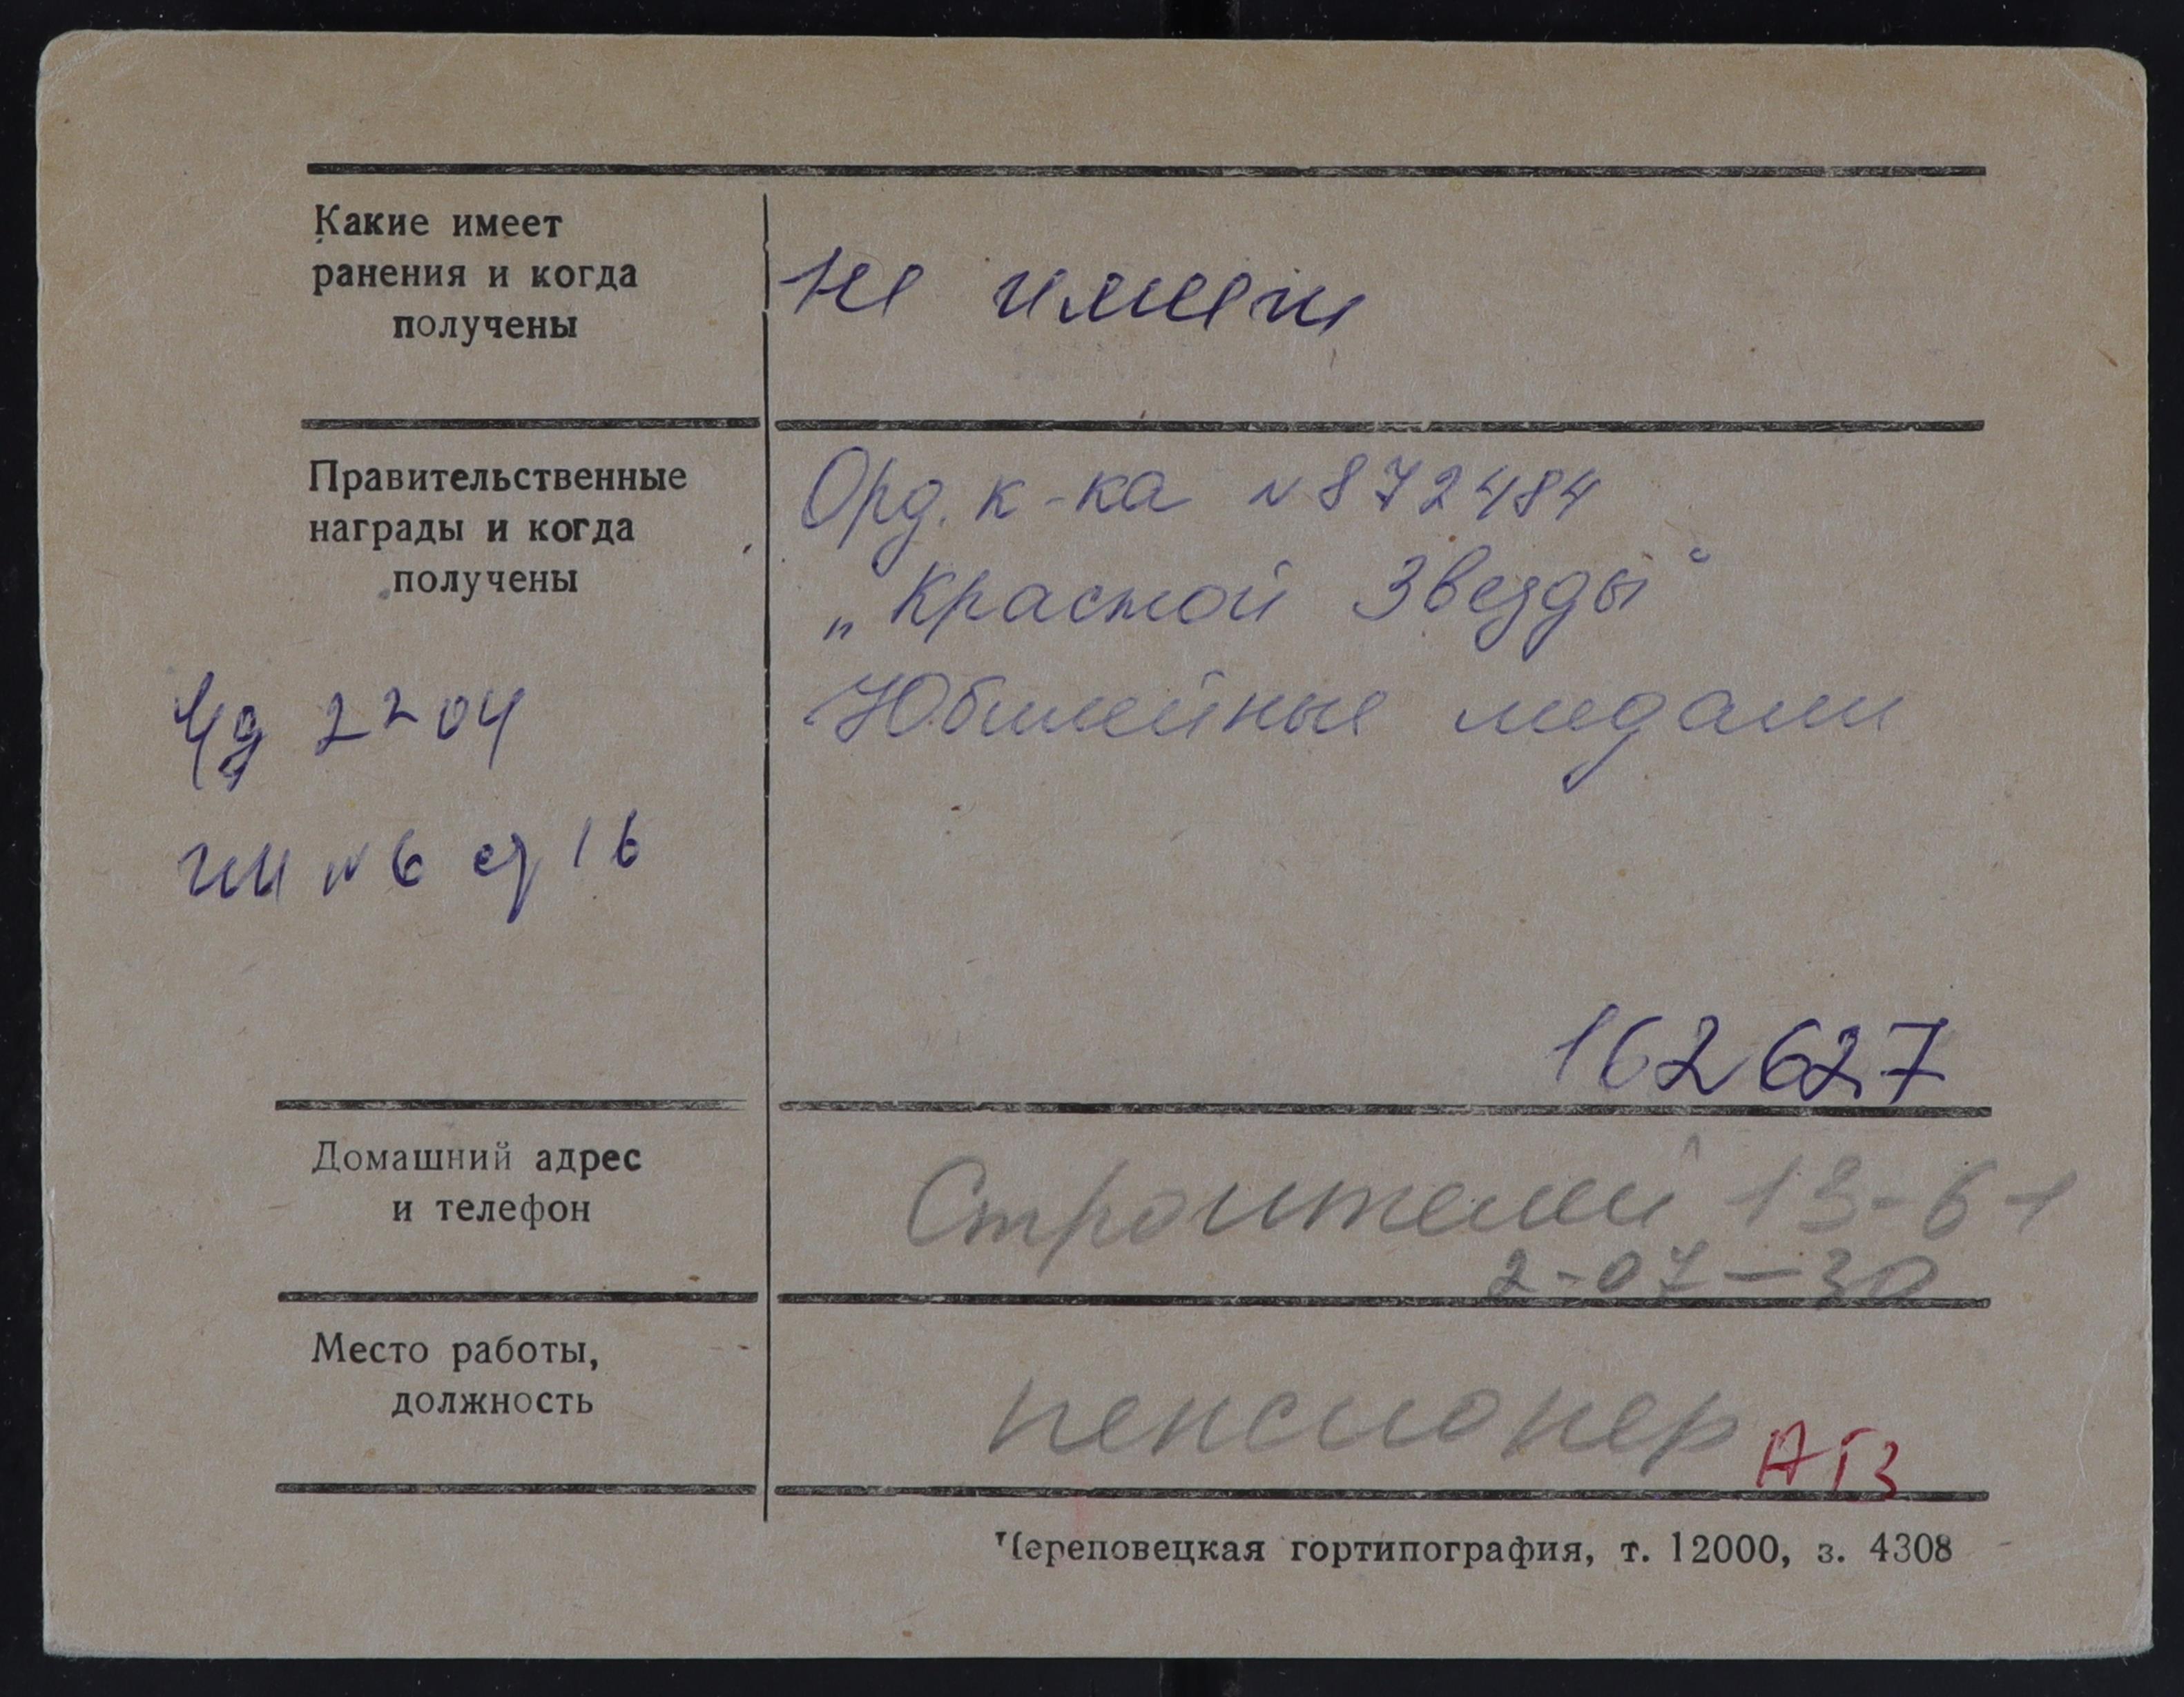 Какие имеет
ранения и когда
получены
не имеги
Правительственные
награды и когда
получены
Орд. к-ка № 872484
„Красной Звезды“
Юбилейные медали
Уд 2204
гич №6 ст 16
162627
Домашний адрес
и телефон
Строителей 13-61
2-07-30
Место работы,
должность
пенсионер
АГЗ
Череповецкая гортипография, т. 12000, з. 4308